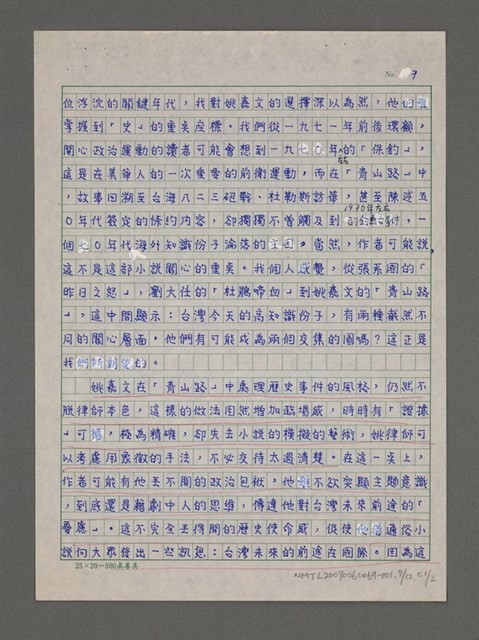 No. 9
位浮沈的關鍵年代，我對姚嘉文的選擇深以為然，他
掌握到「史」的重要座標。我們從一九七一年前後環顧，
關心政治運動的讀者可能會想到一九七〇年的「保釣」，
左右
這是在美華人的一次重要的前衛運動，而在「青山路」中
，故事回溯至台海八二三砲戰、杜勒斯訪華，甚至陳述五
1970年左右
〇年代簽定的條約內容，卻獨獨不曾觸及到，一
個七〇年代海外知識份子淪落的主因。當然，作者可能說，
這不是這部小說關心的重點。我個人感覺，從張系國的「
昨日之怒」，劉大任的「杜鵑啼血」到姚嘉文的「青山路
」，這中間顯示：台灣今天的高知識份子，有兩種截然不
同的關心層面，他們有可能成為兩個交集的圓嗎？這正是
我們所期望的。
姚嘉文在「青山路」中處理歷史事件的風格，仍然不
脫律師本色，這樣的做法固然增加臨場感，時時有「證據
」可循，極為精確，卻失去小說的模擬的藝術，姚律師可
以考慮用象徵的手法，不必交待太過清楚。在這一點上，
作者可能有他丟不開的政治包袱，他雖不欲突顯主題意識
，到底還是藉劇中人的思維，傳達他對台灣未來前途的「
憂慮」。這不完全丟得開的歷史使命感，促使他借通俗小
說向大眾發出一些訊息：台灣未來的前途在國際。因為這
25×20=500真善美
NMTL20070060069-001, 9/12, C1/2